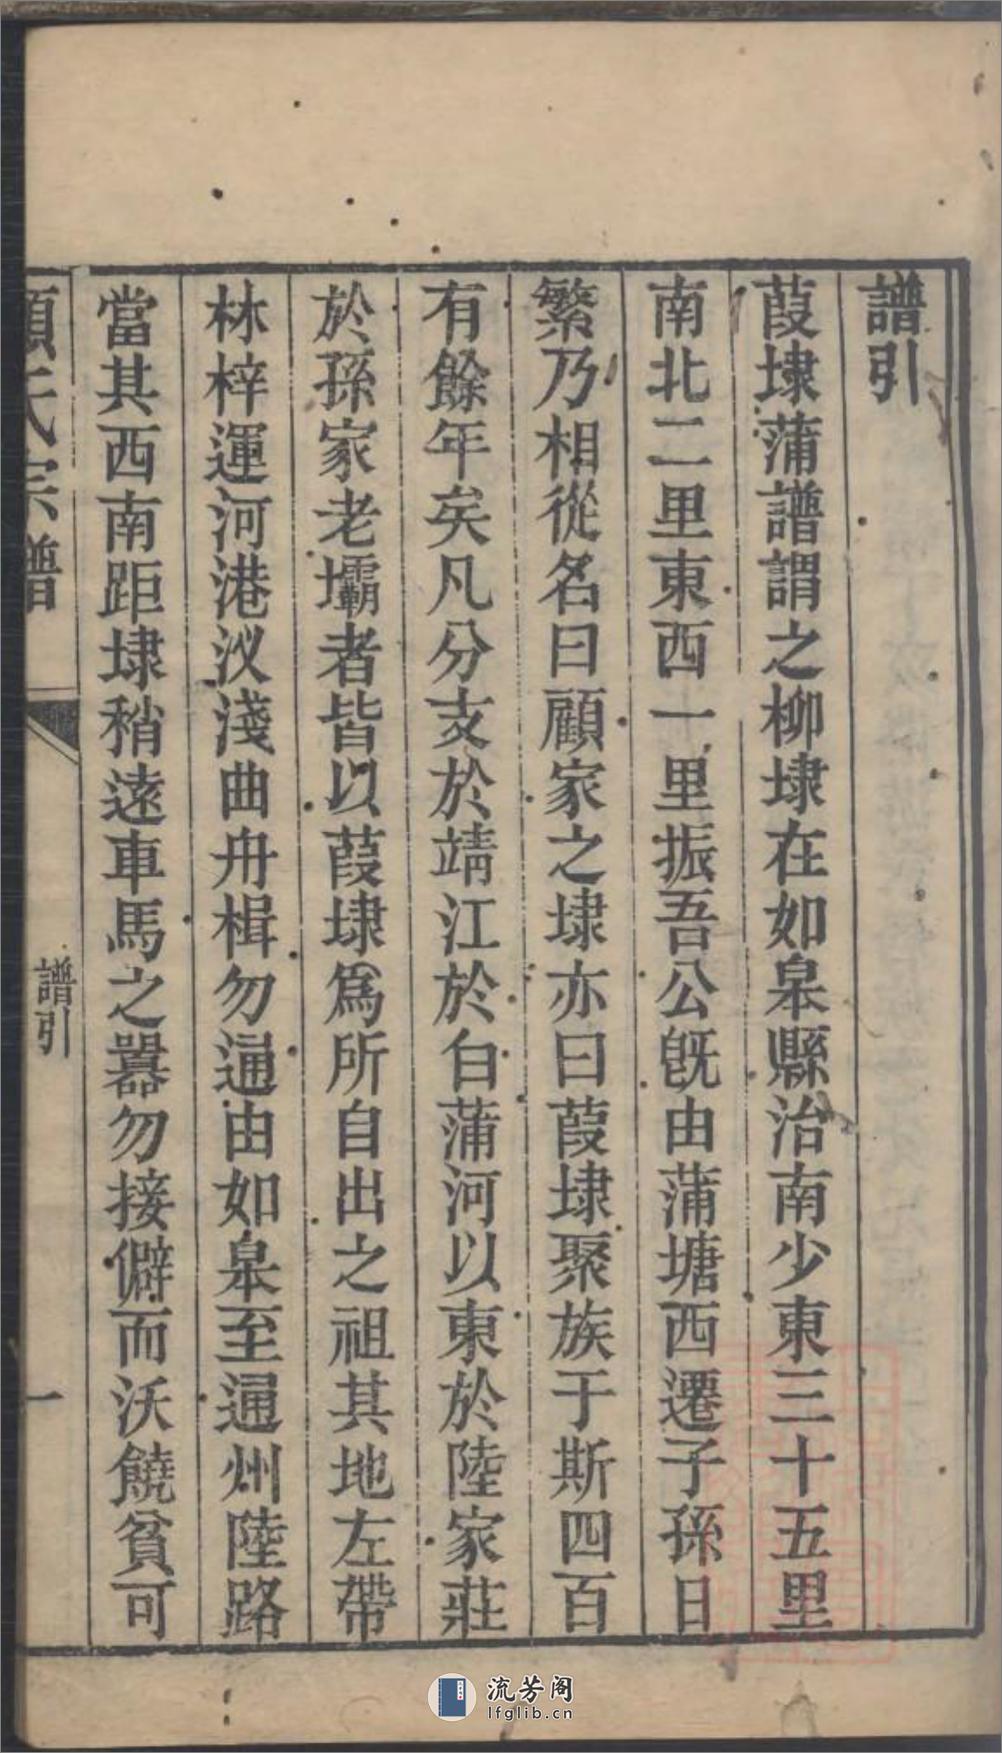 譜引
葭埭蒲譜謂之柳埭在如臯縣治南少東三十五里
南北二里東西一里振吾公旣由蒲塘西遷子孫日
繁乃相從名曰顧家之埭亦曰葭埭聚族于斯四百
有餘年矣凡分支於靖江於白蒲河以東於陸家莊
於孫家老壩者皆以葭埭爲所自出之祖其地左帶
林梓運河港汊淺曲舟楫勿通由如臯至通州陸路
當其西南距埭稍遠車馬之囂勿接僻而沃饒貧可
顧氏宗譜
譜引
一
流芳阁
lfglib.cn